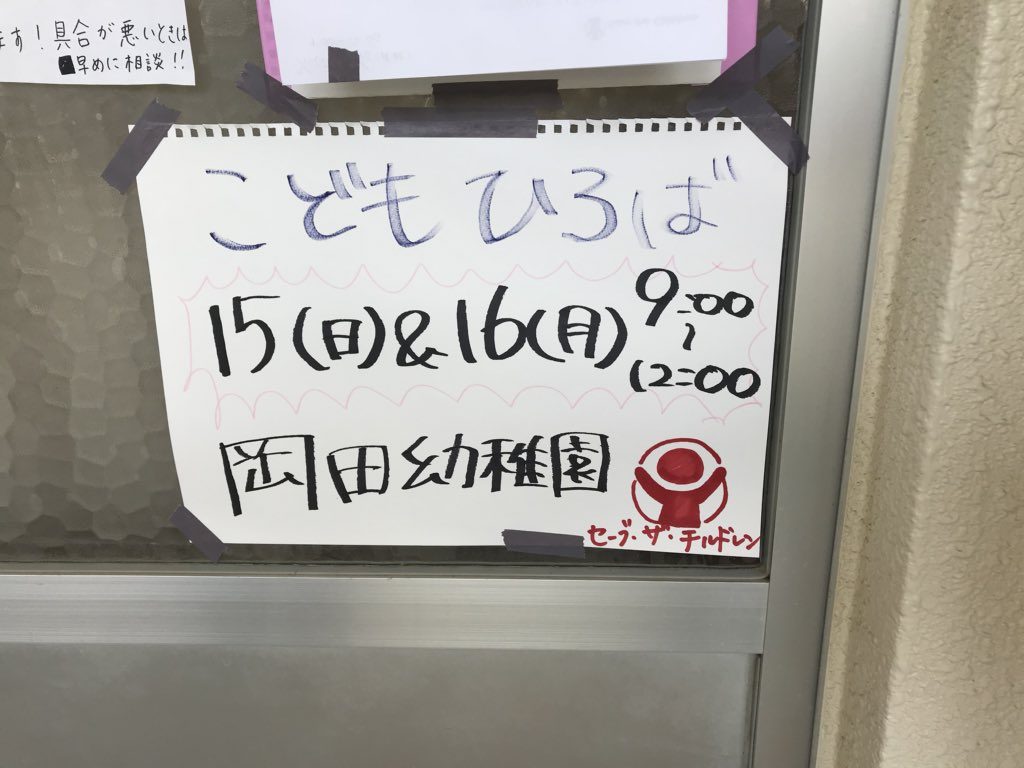 ます！具合が悪いときは
早めに相談!!
こどもひろば
15(日)&16(月) 9:00
～
12:00
岡田幼稚園
セーブ・ザ・チルドレン